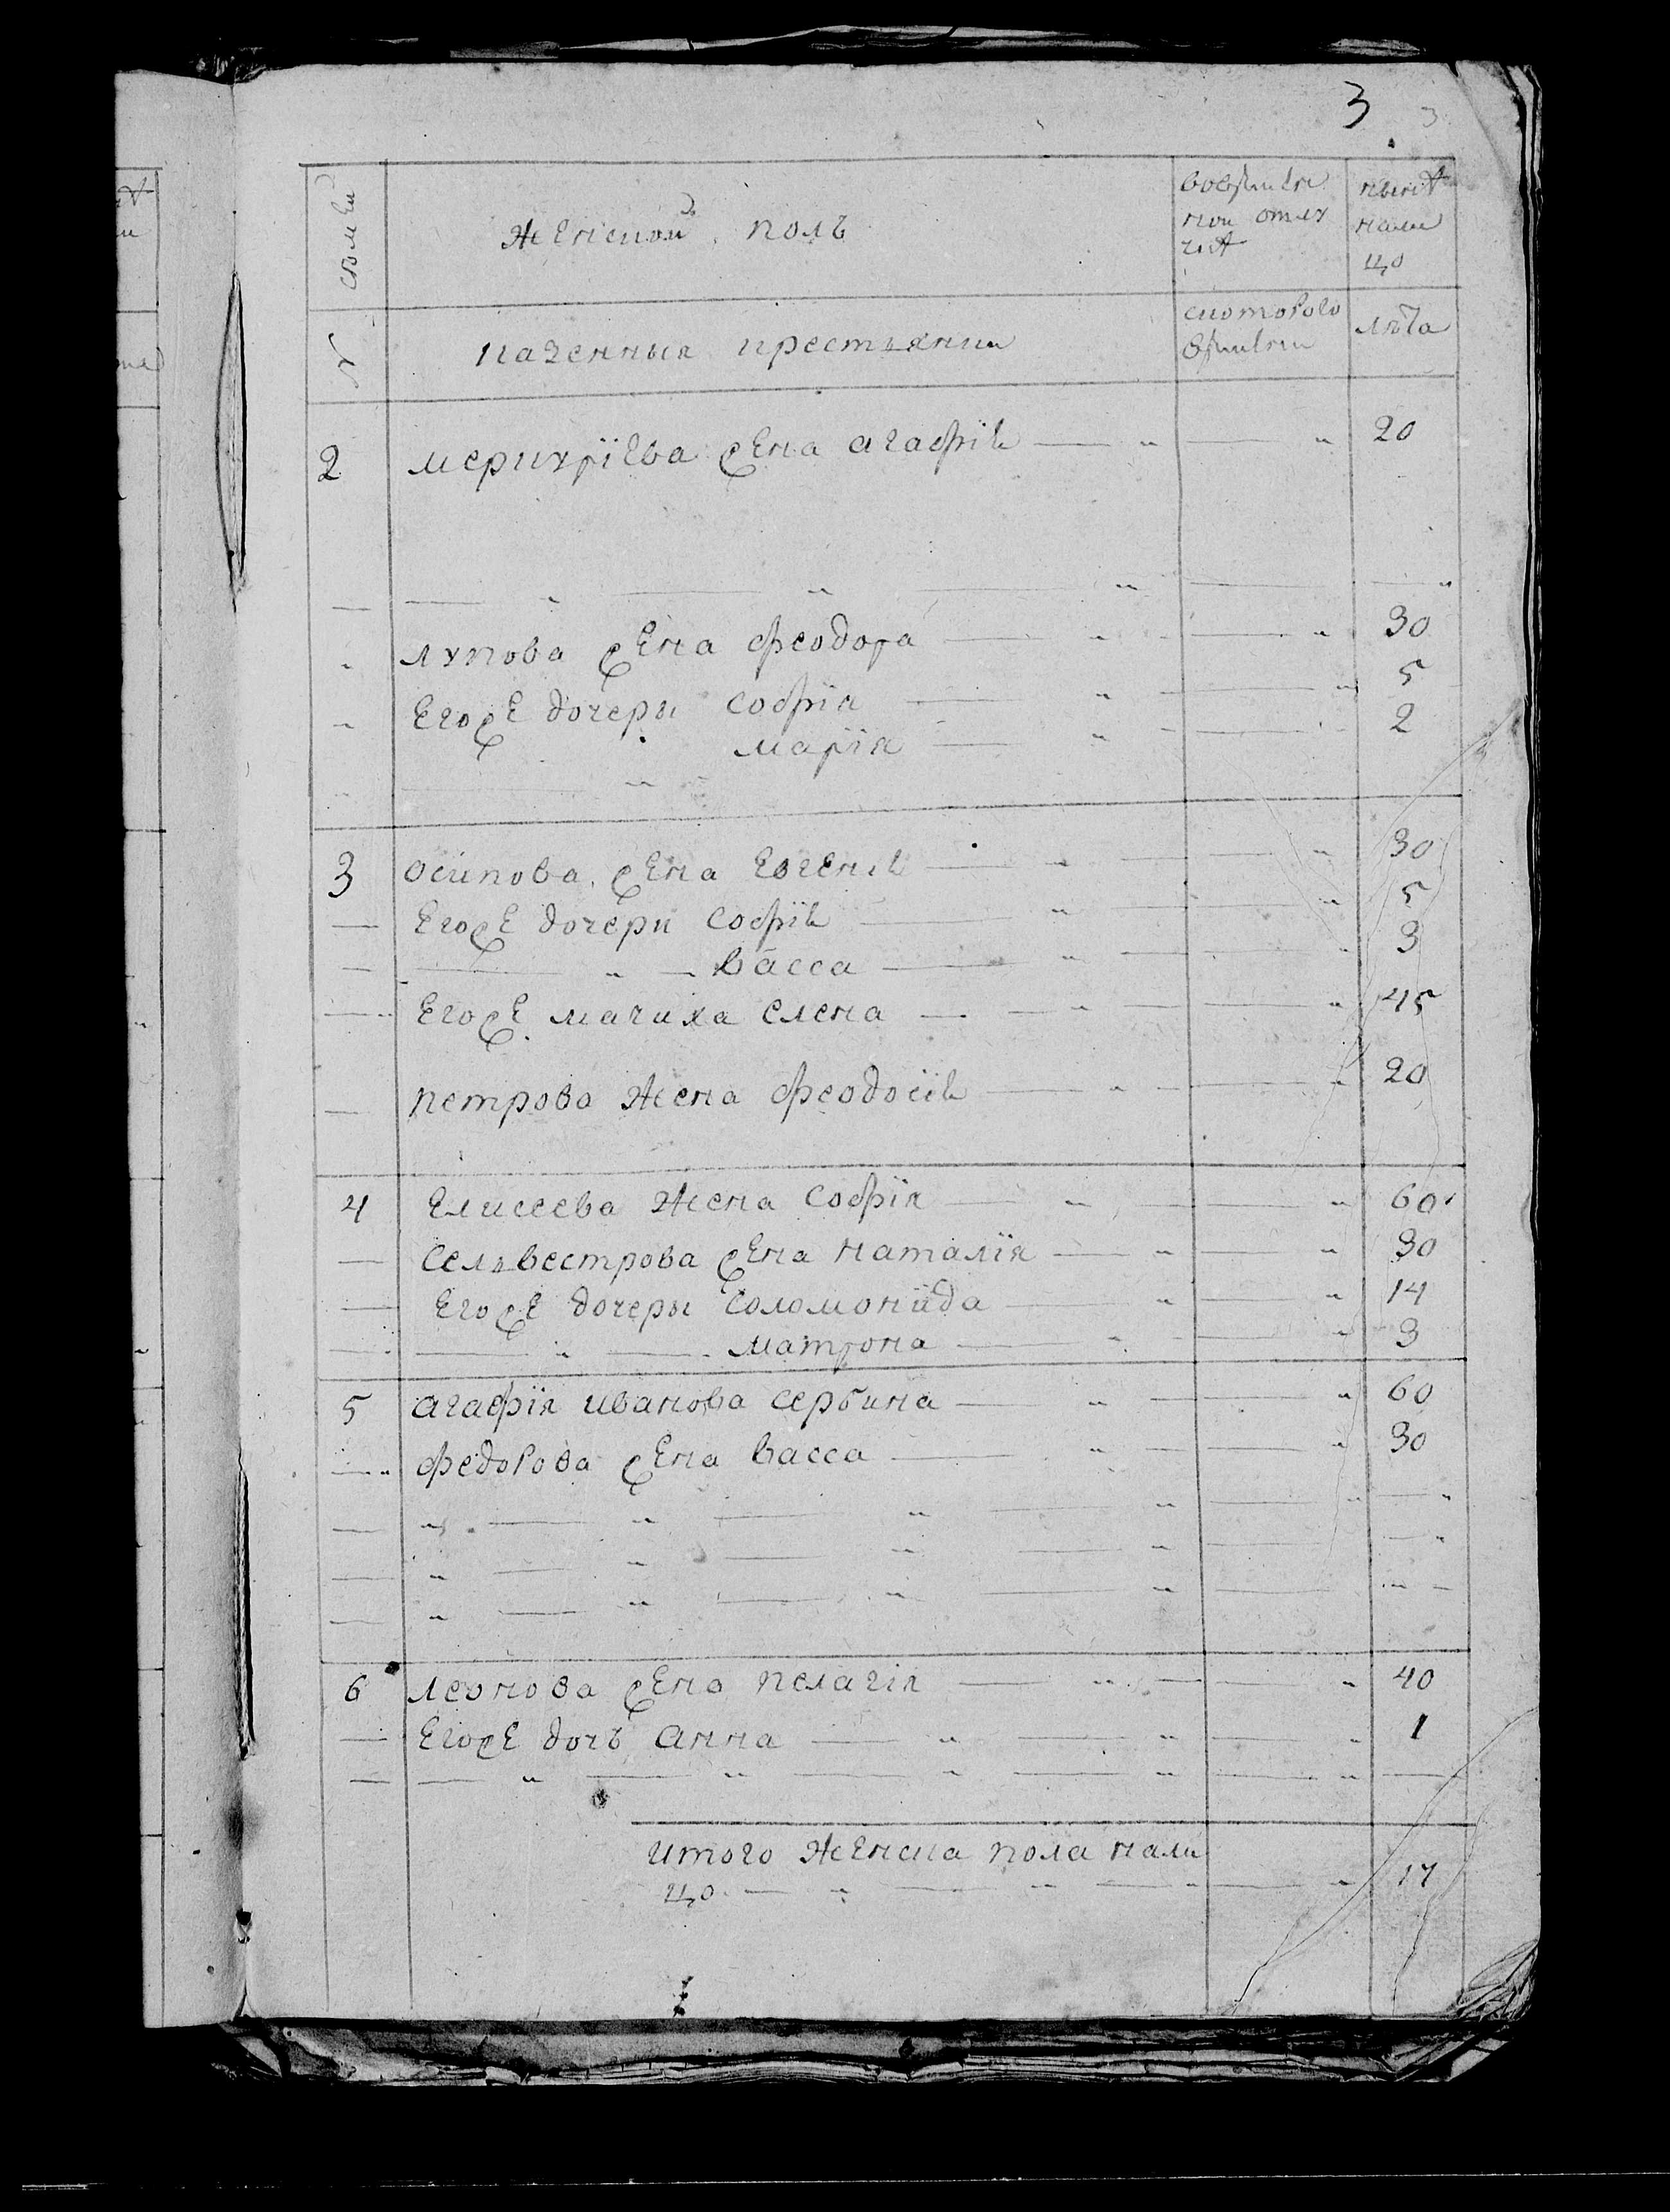 3 3
семей
женской полъ
вовремен
ной отлу
чкѣ
нынѣ
нали
цо
№
казенныя крестьянки
скоторого
времени
лѣта
2 меркуріева жена агафія — „ — „ 20
— — „ — „ — „ — — „
„ лупова жена феодора — „ — „ 30
„ Егожъ дочери софія — „ — „ 5
марія — „ — 2
„ — „
3 осипова жена Евгенія — „ — „ 30
— Егожъ дочери софія — „ — „ 5
— — „ — васса — „ — „ 3
— Егожъ мачиха елена — — „ — „ 45
— петрова жена феодосія — „ — — „ 20
4 Елисеева жена софія — „ — „ 60
— сельвестрова жена наталія — „ — „ 30
— Егожъ дочери соломонида — „ — „ 14
— — „ — матрона — „ — „ 3
5 агафія иванова сербина — „ — — „ 60
— федорова жена васса — „ — — „ 30
— „ — „ — „ — „ — „ — „
— „ — „ — „ — „ — — „
— „ — „ — „ — „ — „ —
6 леонова жена пелагія — „ — — „ 40
— Егожъ дочь анна — „ — „ — „ 1
— — „ — „ — „ — „ — „ —
итого женска пола нали
цо — „ — „ — „ — „ 17